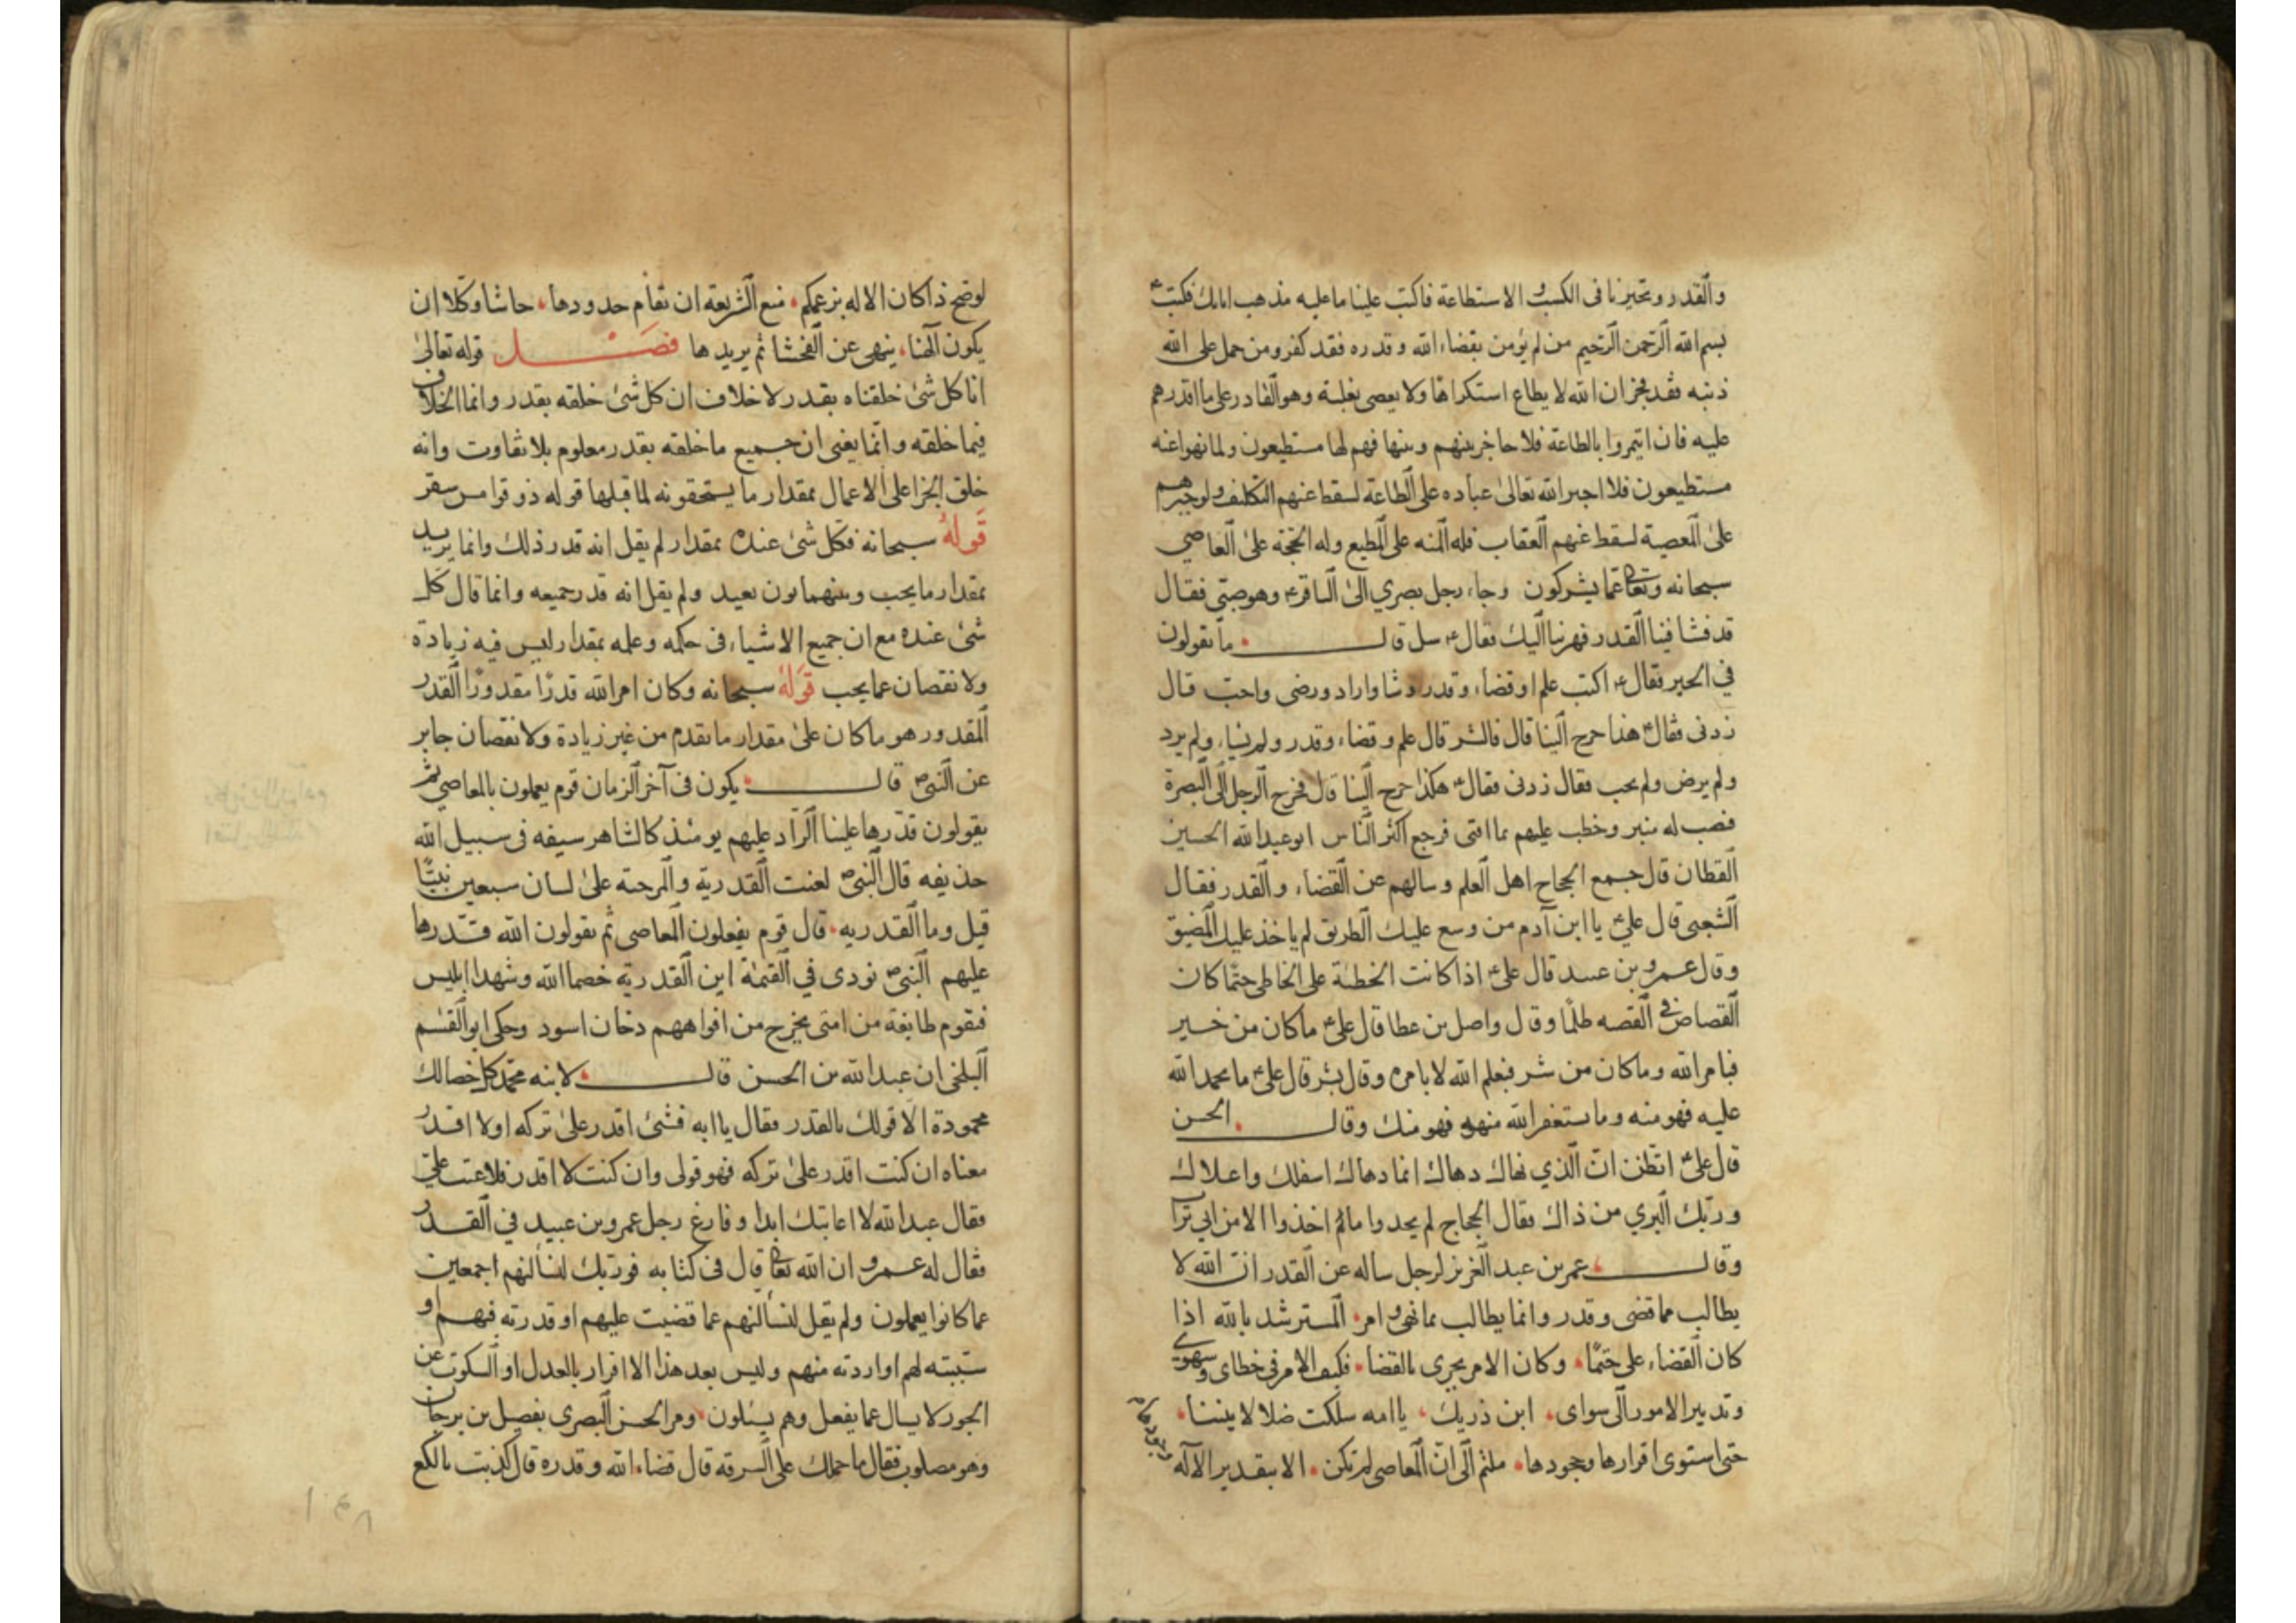 والقدر وتحيرنا فى الكسب و الاستطاعة فاكتب علينا ما عليه مذهب ابايك فكتب ع
بسم الله الرحمن الرحيم من لم يؤمن بقضاء الله وقدره فقد كفر ومن حمل على الله
ذنبه فقد فجر ان الله لا يطاع استكراها ولا يعصى بغلبة وهو القادر على ما اقدرهم
عليه فان ايتمروا بالطاعة فلا حاجز بينهم وبينها فهم لها مستطيعون ولما نهوا عنه
مستطيعون فلا اجبر الله تعالى عباده على الطاعة لسقط عنهم التكليف ولو جبرهم
على المعصية لسقط عنهم العقاب فله المنه على المطيع وله الحجة على العاصي
سبحانه وتعالى عما يشركون وجاء رجل بصري الى الباقر ع وهو صبى فقال
قد فشا فينا القدر فهربنا اليك فقال ع سل قال ما تقولون
في الخير فقال ع اكتب علم او قضاء وقدر وشا واراد ورضى واحب قال
زدنى فقال ع هذا خرج الينا قال فالشر قال علم وقضاء وقدر ولم يشاء ولم يرد
ولم يرض ولم يحب فقال زدنى فقال ع هكذا خرج الينا قال فخرج الرجل الى البصرة
فنصب له منبر وخطب عليهم بما افتى فرجع اكثر الناس ابو عبد الله الحسين
القطان قال جمع الحجاج اهل العلم وسالهم عن القضاء والقدر فقال
الشعبى قال علي ع يا ابن آدم من وسع عليك الطريق لم ياخذ عليك المضيق
وقال عمرو بن عبيد قال على ع اذا كانت الخطئة على الخاطى حتما كان
القصاص فى القصه ظلما وقال واصل بن عطا قال على ع ما كان من خير
فبامر الله وما كان من شر فبعلم الله لا بامره وقال بشر قال على ع ما تحمد الله
عليه فهو منه وما ستغفر الله منه فهو منك وقال الحسن
قال على ع اتظن ان الذي نهاك دهاك انما دهاك اسفلك واعلاك
وربك البري من ذاك فقال الحجاج لم يجدوا ما ثم اخذوا الا من ابي تراب
وقال عمر بن عبد العزيز لرجل ساله عن القدر ان الله لا
يطالب مما قضى وقدر وانما يطالب بما نهى و امر المسترشد بالله اذا
كان القضاء على حتما وكان الامر يجرى بالقضا فكيف الامر فى خطاى و سهوى
وتدبير الامور الى سواى ابن ذريك يا امه سلكت ضلالا بيننا
حتى استوى اقرارها وجحودها ملتم الى ان المعاصى لم تكن الا بتقدير الاله
وجودها م
لو صح ذا كان الاله بزعمكم منع الشريعه ان تقام حدودها حاشا وكلا ان
يكون آلهنا ينهى عن الفحشا ثم يريدها فصل قوله تعالى
انا كل شئ خلقناه بقدر لا خلاف ان كل شئ خلقه بقدر وانما الخلاف
فيما خلقه وانما يغنى ان جميع ما خلقه بقدر معلوم بلا تفاوت وانه
خلق الجزا على الاعمال بمقدار ما يستحقونه لما قبلها قوله ذوقوا مس سقر
قوله سبحانه فكل شئ عنده بمقدار لم يقل انه قدر ذلك وانما يريد
بمقدار ما يجب وبينهما بون بعيد ولم يقل انه قدر جميعه وانما قال كل
شئ عنده مع ان جميع الاشياء فى حكمه وعلمه بمقدار ليس فيه زيادة
ولا نقصان عما يجب قوله سبحانه وكان امر الله قدرا مقدورا القدر
المقدور هو ما كان على مقدار ما تقدم من غير زيادة ولا نقصان جابر
عن النبى ص قال يكون فى آخر الزمان قوم يعملون بالمعاصي ثم
يقولون قدرها علينا الراد عليهم يومئذ كالشاهر سيفه فى سبيل الله
حذيفه قال النبى ص لعنت القدرية والمرجئة على لسان سبعين نبيا
قيل وما القدريه قال قوم يفعلون المعاصى ثم يقولون الله قدرها
عليهم النبى ص نودى في القيمة اين القدرية خصما الله وشهدا ابليس
فيقوم طايفة من امتى يخرج من افواههم دخان اسود وحكى ابو القسم
البلخى ان عبد الله بن الحسن قال لابنه محمد كل خصالك
محمودة الا قولك بالقدر فقال يا ابه فشئ اقدر على تركه اولا اقدر
معناه ان كنت اقدر على تركه فهو قولى وان كنت لا اقدر فلا عتب علي
فقال عبد الله لا اعاتبك ابدا وفارغ رجل عمرو بن عبيد في القدر
فقال له عمرو ان الله تعالى قال فى كتابه فوربك لنسألنهم اجمعين
عما كانوا يعملون ولم يقل لنسألنهم عما قضيت عليهم او قدرته فيهم او
سببته لهم او اردته منهم وليس بعد هذا الا اقرار بالعدل او السكوت عن
الجور لا يسال عما يفعل وهم يسئلون ومر الحسن البصرى بفصيل بن برجان
وهو مصلوب فقال ما حملك على السرقة قال قضاء الله وقدره قال كذبت يا لكع